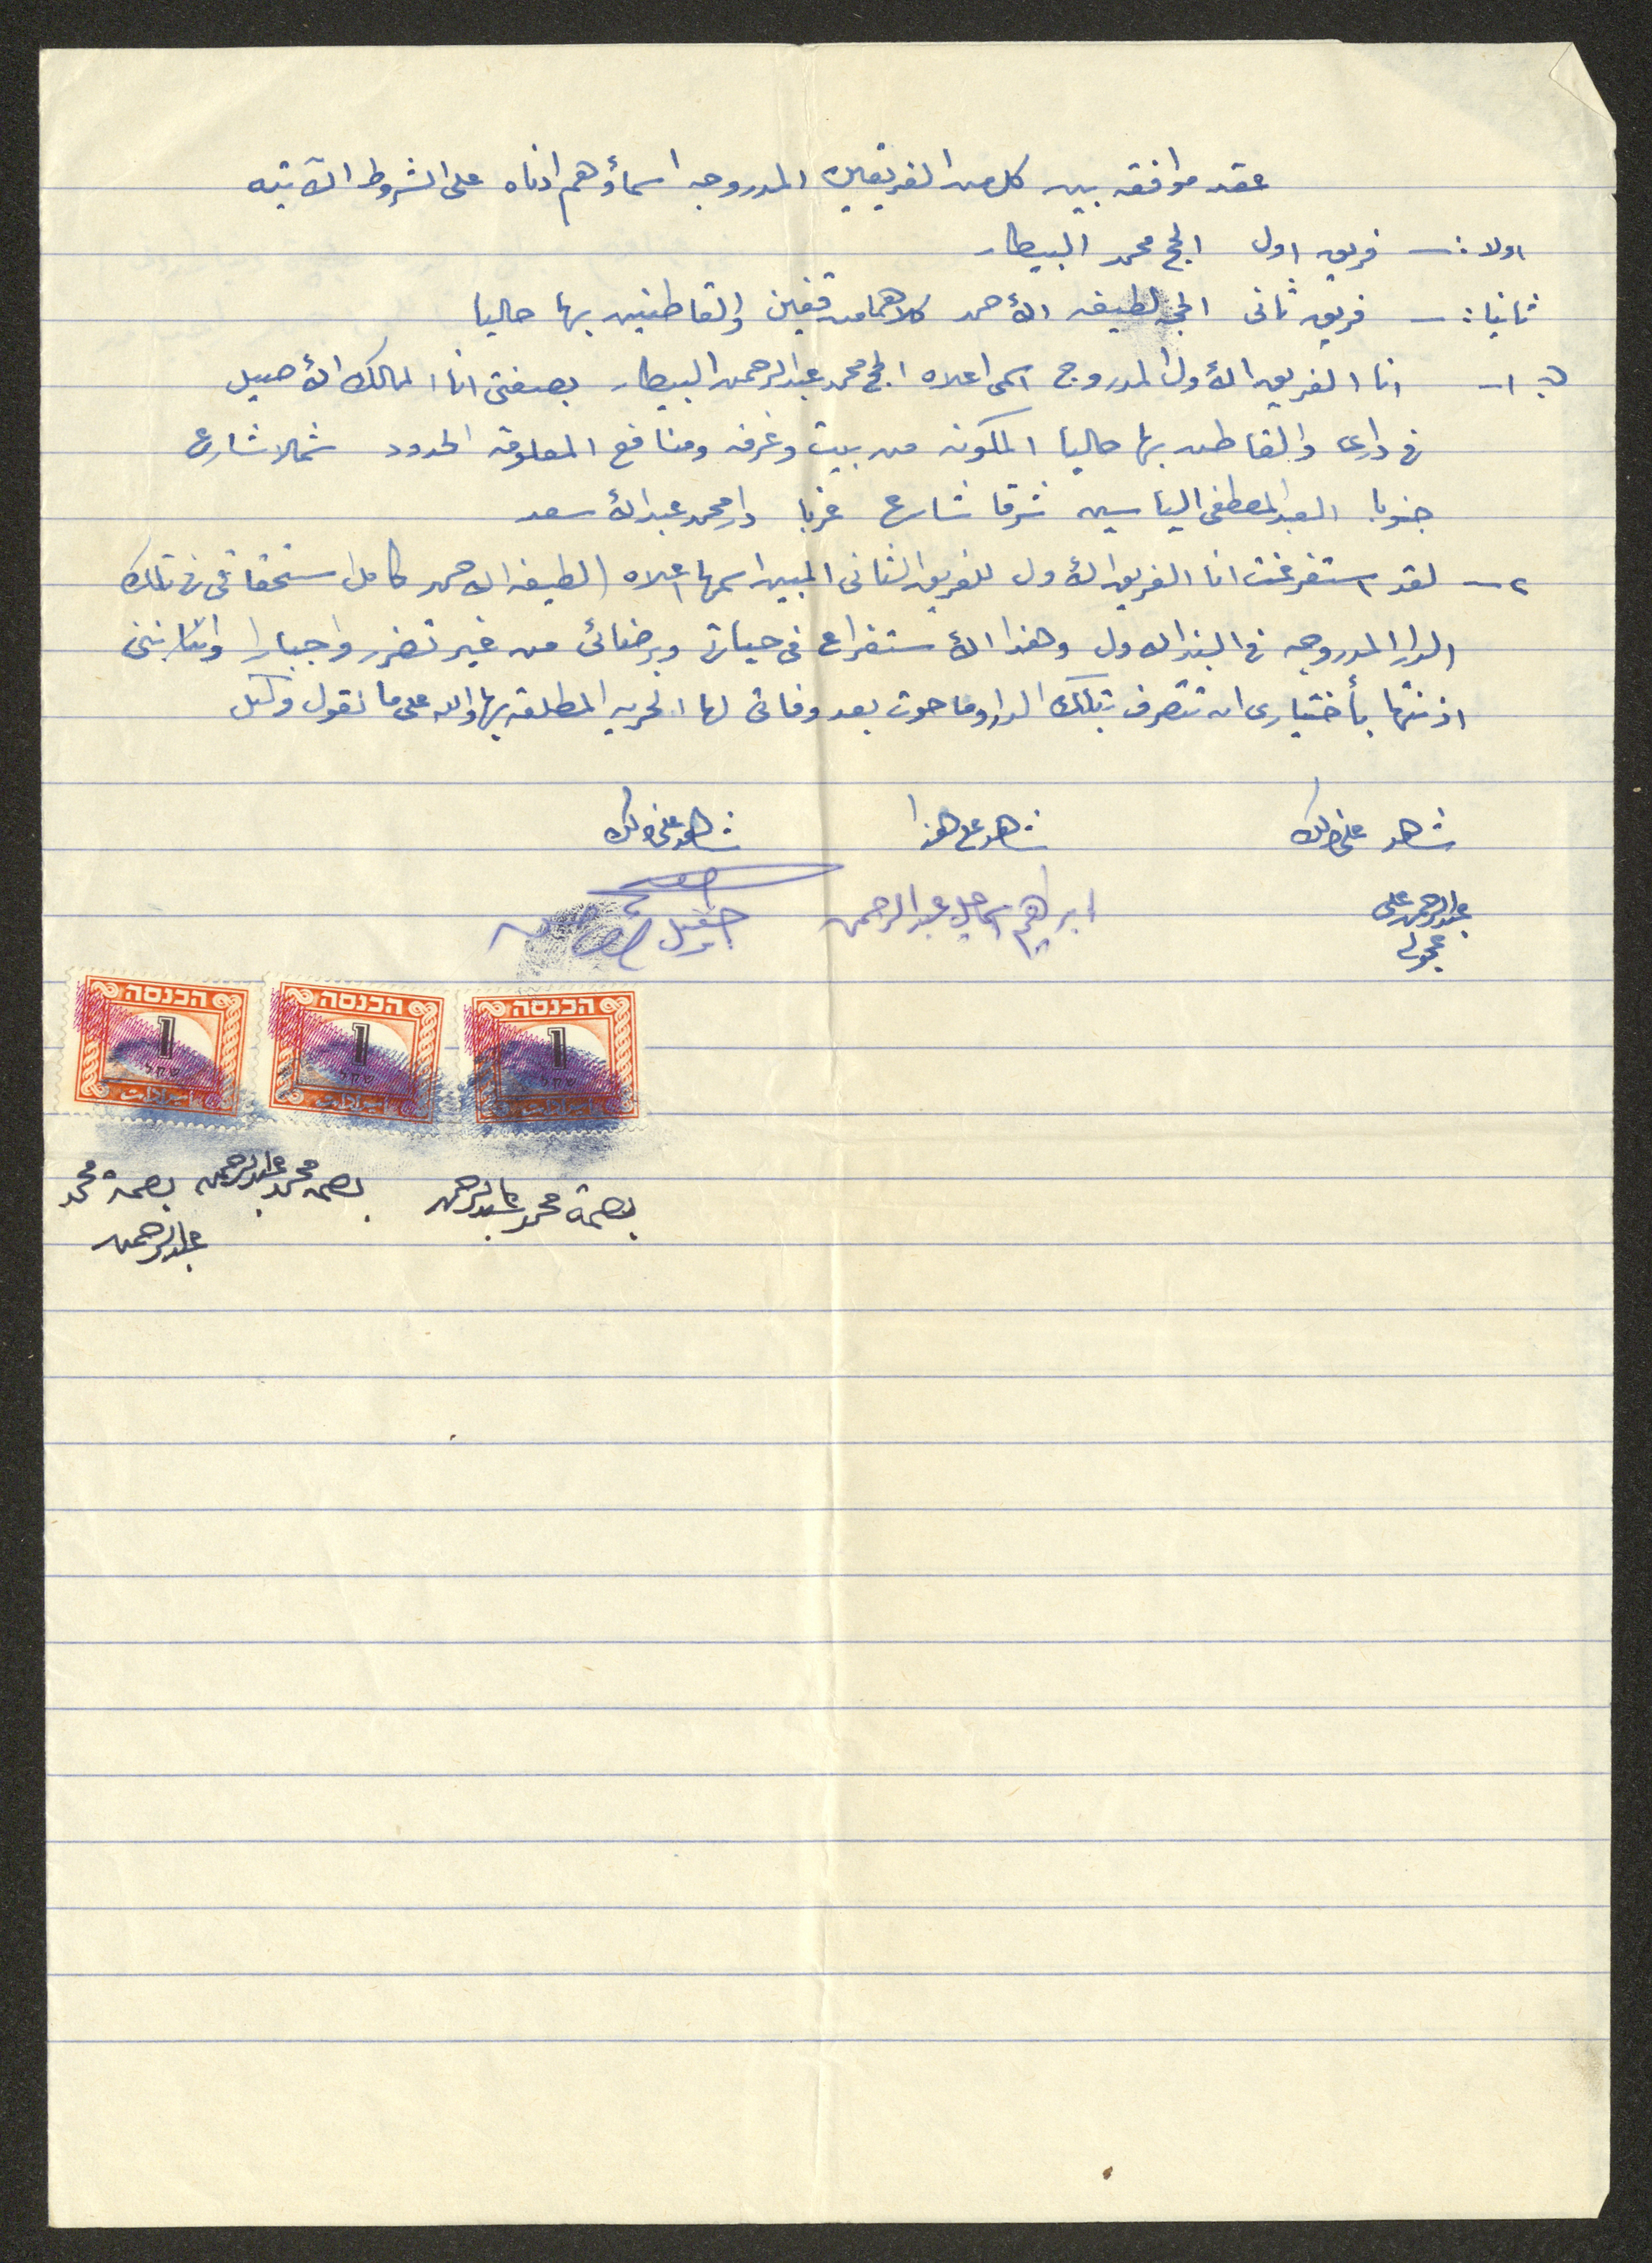 عقد موافقه بين كل من الفريقين المدروجه اسماؤهم ادناه على الشروط الآتيه
اولا :— فريق اول الحج محمد البيطار
ثانيا :— فريق ثانى الحجه لطيفه الأحمد كلاهما من قفين والقاطنين بها حاليا
١— انا الفريق الأول المدروج اسمى اعلاه الحج محمد عبد الرحمن البيطار بصفتى انا المالك الأصيل
فى دارى والقاطن بها حاليا المكونه من بيت وغرفه ومنافع المعلومة الحدود شمالا شارع
جنوبا العبد المصطفى الياسين شرقا شارع غربا دار محمد عبد الأسعد
٢— لقد استفرغت انا الفريق الأول للفريق الثانى المبين اسمها اعلاه لطيفه الاحمد كامل استحقاقى فى تلك
الدار المدروجه فى البند الاول وهذا الأستفراغ فى حياتى وبرضائى من غير تضرر واجبار وانننى
اذنتها بأختيارى ان تتصرف بتلك الدار وما حوت بعد وفاتى لها الحريه المطلقه بها والله على ما نقول وكيل
شاهد على ذلك شاهد على هذا شاهد على ذلك
عبد الرحمن على ابراهيم اسماعيل عبد الرحمن
عجولى
הכנסה הכנסה הכנסה
1 1 1
שקל שקל שקל
بصمة محمد عبد الرحمن بصمه محمد عبد الرحمن بصمة محمد
عبد الرحمن